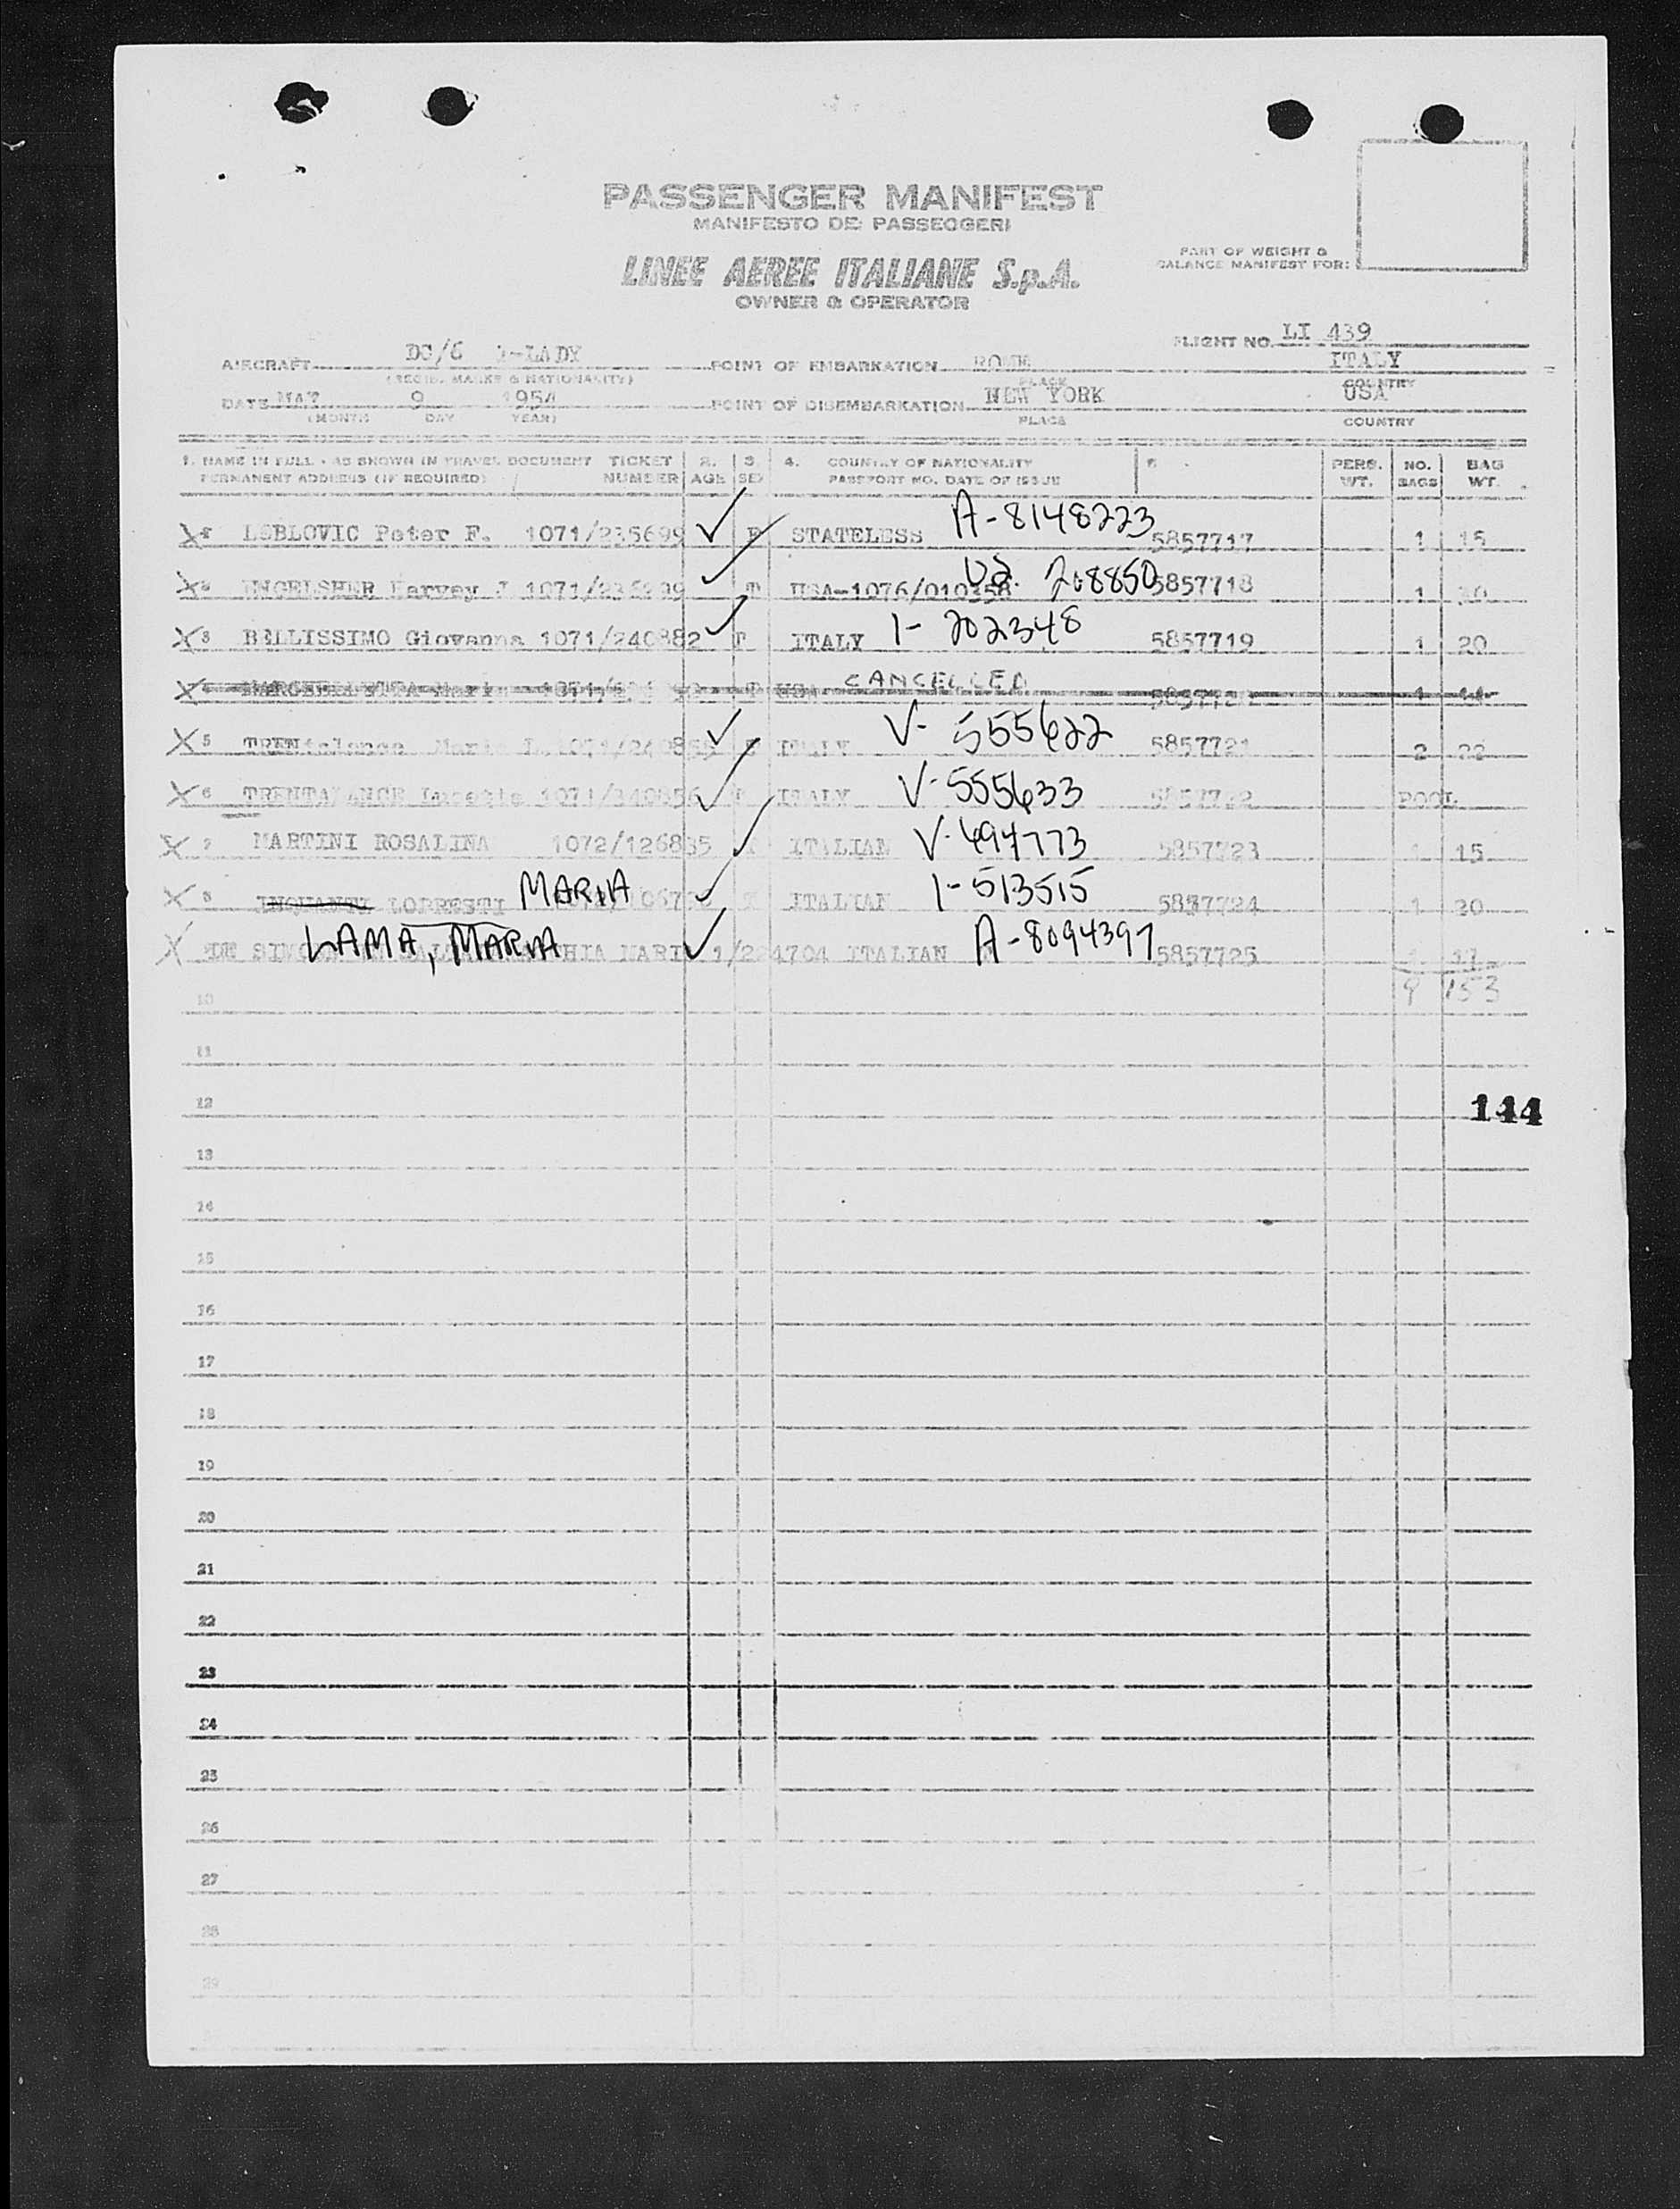 PASSENGER MANIFEST
MANIFESTO DEI PASSEGGERI
LINEE AEREE ITALIANE S.p.A.
OWNER & OPERATOR
PART OF WEIGHT &
BALANCE MANIFEST FOR:
FLIGHT NO. LI 439
AIRCRAFT DC/6 I-LADY POINT OF EMBARKATION ROME ITALY
(REGIS. MARKS & NATIONALITY) PLACE COUNTRY
DATE MAY 9 1954 POINT OF DISEMBARKATION NEW YORK USA
(MONTH DAY YEAR) PLACE COUNTRY
1. NAME IN FULL - AS SHOWN IN TRAVEL DOCUMENT TICKET 2. 3. 4. COUNTRY OF NATIONALITY PERS. NO. BAG
PERMANENT ADDRESS (IF REQUIRED) NUMBER AGE SEX PASSPORT NO. DATE OF ISSUE WT. BAGS WT.
X LOBLOVIC Peter F. 1071/235699 ✓ STATELESS A-8148223 5857717 1 15
X ENGELSHER Harvey J ✓ USA-1076/010358 208850 5857718 1
X 3 BELLISSIMO Giovanna 1071/240882 ✓ ITALY I-202348 5857719 1 20
X CANCELLED
X 5 ✓ ITALY V-555622 5857721 2 22
X 6 ✓ ITALY V-555633 POOL
X 7 MARTINI ROSALINA 1072/126835 ✓ ITALIAN V-494773 5857723 1 15
X 8 LOPRESTI MARIA ✓ ITALIAN I-513515 5857724 1 20
X LAMA, MARIA ✓ ITALIAN A-8094397 5857725 1 17
9 153
10
11
12
144
13
14
15
16
17
18
19
20
21
22
23
24
25
26
27
28
29